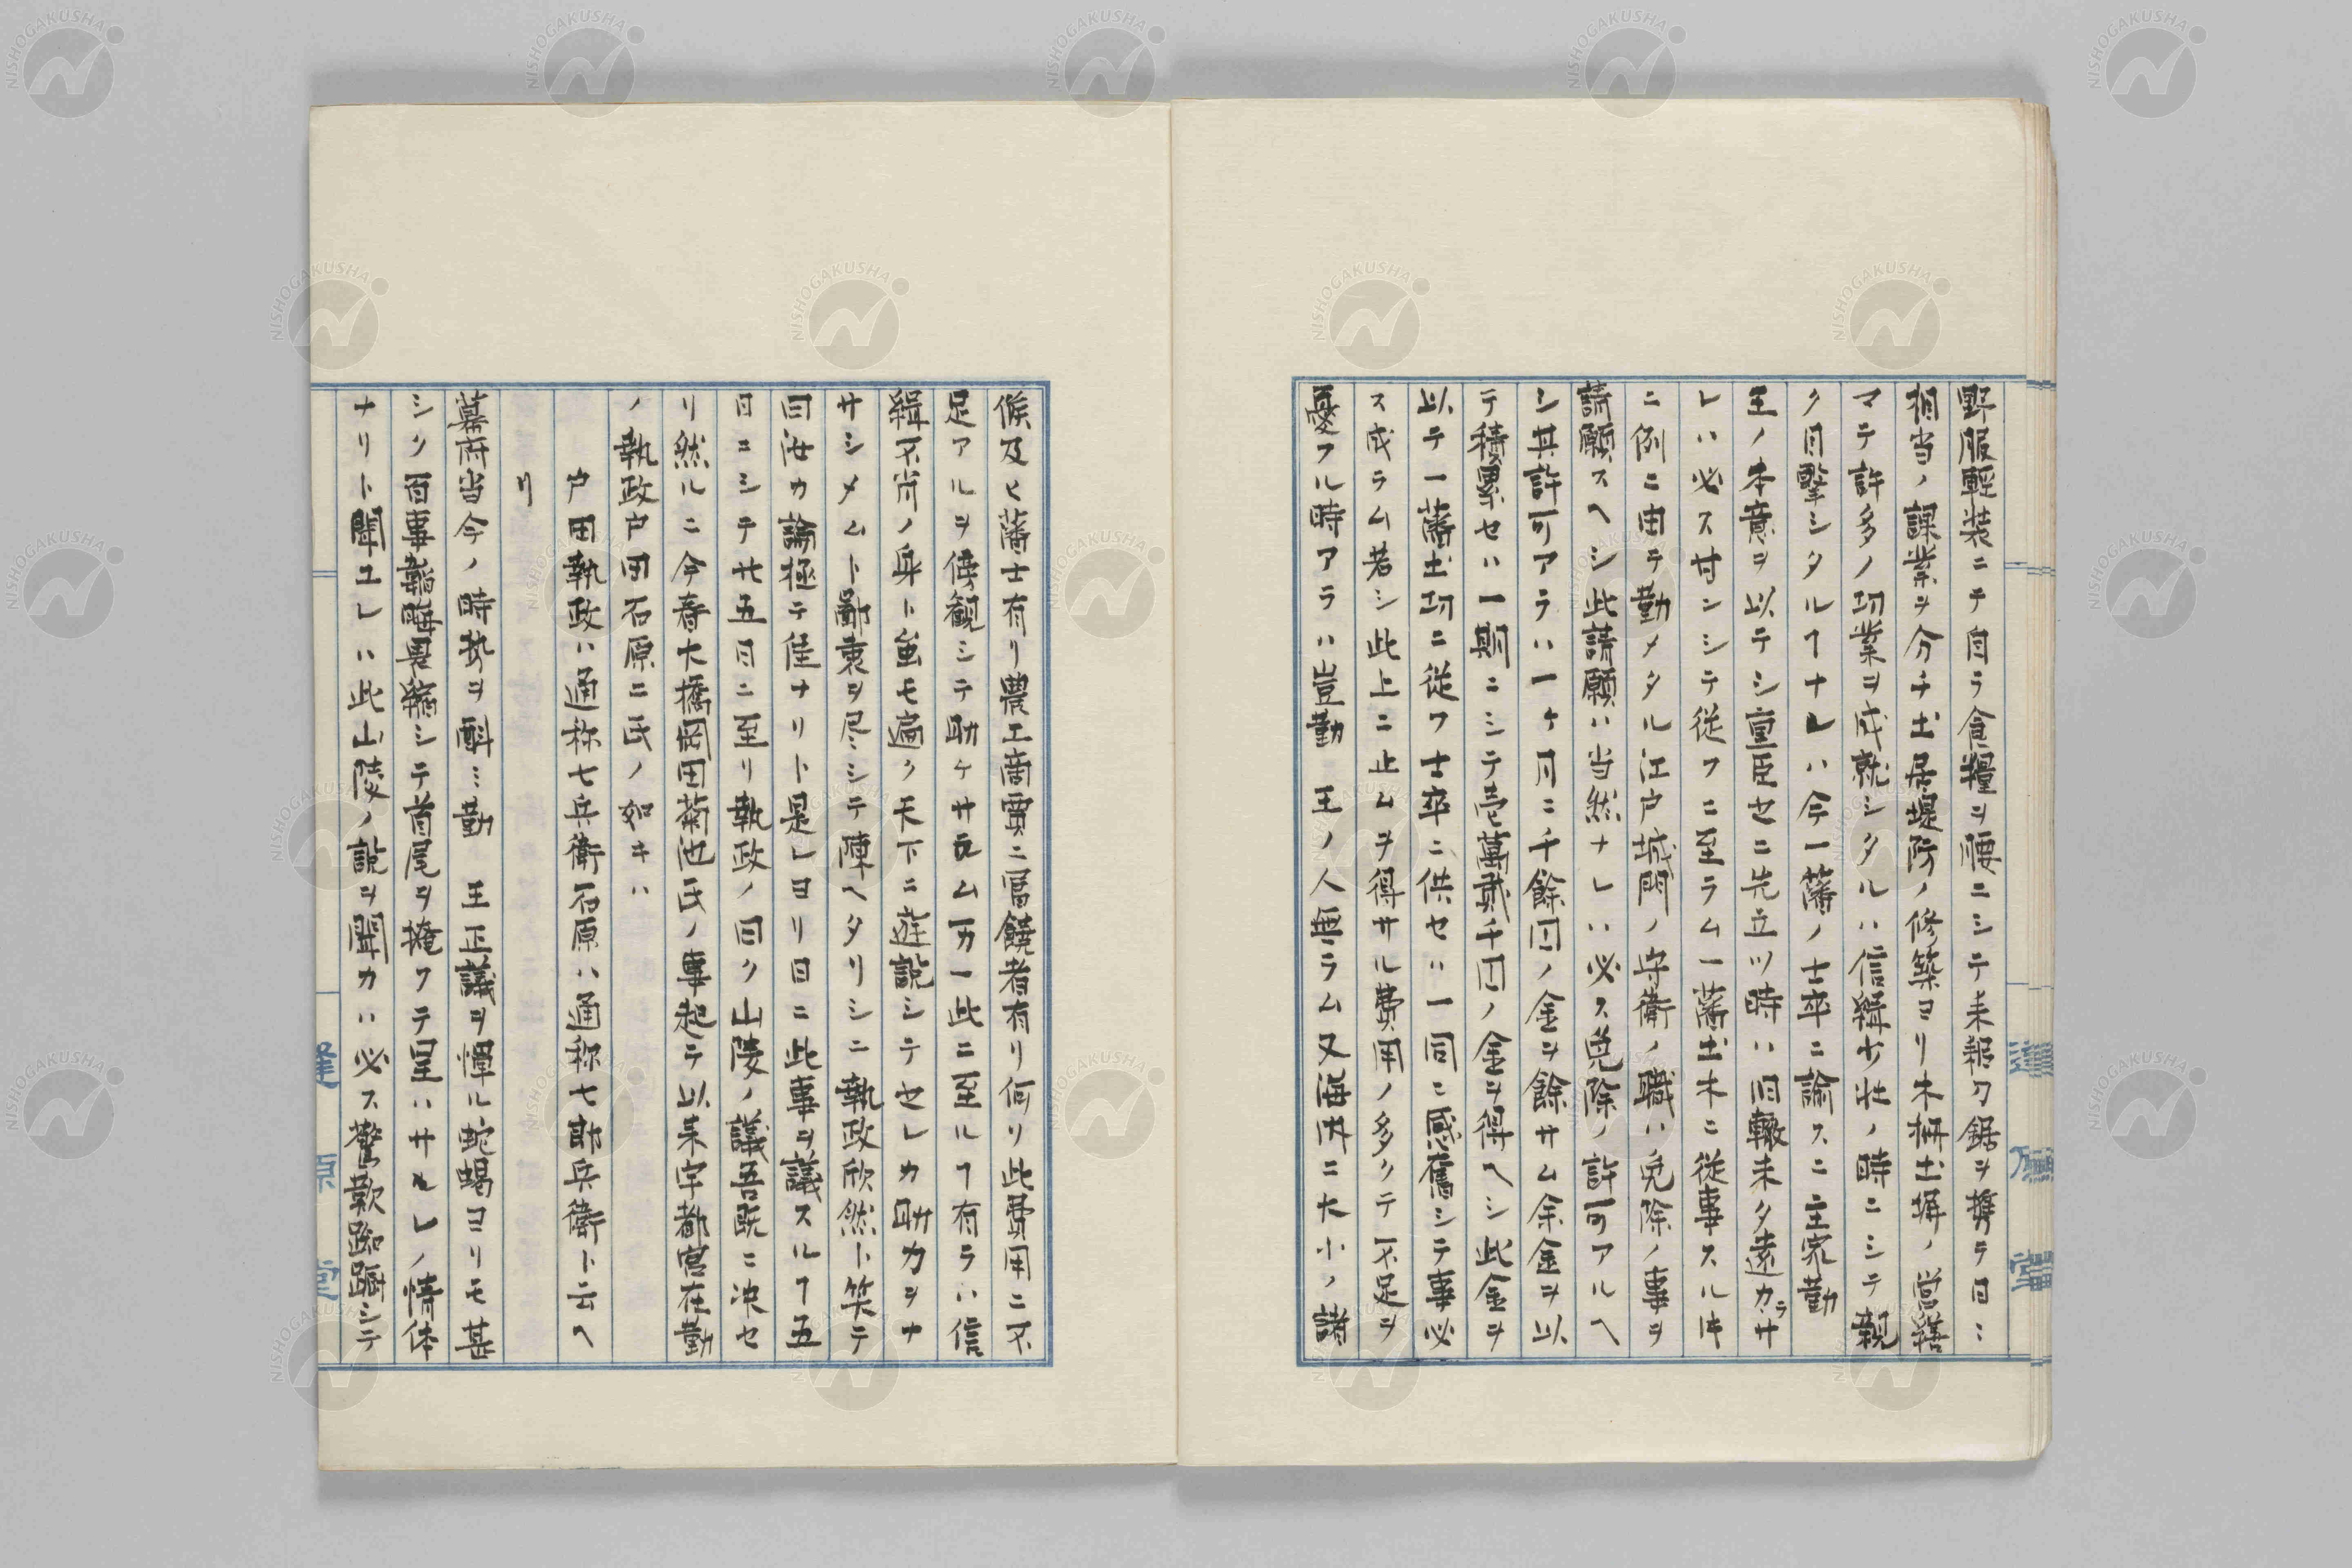 野服軽装ニテ自ラ食糧ヲ腰ニシテ耒耜刀鋸ヲ携ラ日ニ
相当ノ課業ヲ分チ土居堤防ノ修築ヨリ木柵土塀ノ営繕
マテ許多ノ功業ヲ成就シタルハ信緝少壮ノ時ニシテ親
ク目撃シタルヿナレハ今一藩ノ士卒ニ諭スニ主家勤
王ノ本意ヲ以テシ重臣セニ先立ツ時ハ旧轍未タ遠カラサ
レハ必ス甘ンシテ従フニ至ラム一藩土木ニ従事スル㐧
ニ例ニ由テ勤メタル江戸城門ノ守衛ノ職ハ免除ノ事ヲ
請願スヘシ此請願ハ当然ナレハ必ス免除ノ許可アルヘ
シ其許可アラハ一ケ月ニ千餘円ノ金ヲ餘サム余金ヲ以
テ積累セハ一期ニシテ壱萬貳千円ノ金ヲ得ヘシ此金ヲ
以テ一藩土功ニ従フ士卒ニ供セハ一同ニ感奮シテ事必
ス成ラム若シ此上ニ止ムヲ得サル費用ノ多クテ不足ヲ
憂フル時アラハ豈勤 王ノ人無ラム又海内ニ大小ノ諸
候及ヒ藩士有リ農工商賈ニ富饒者有リ何リ此費用ニ不
足アルヲ傍観シテ助ケサラム万一此ニ至ルヿ有ラハ信
緝不肖ノ身ト虽モ遍ク天下ニ遊説シテセレカ助力ヲナ
サシメムト鄙衷ヲ尽シテ陳ヘタリシニ執政欣然ト笑テ
曰汝カ論極テ佳ナリト是レヨリ日ニ此事ヲ議スルヿ五
日ニシテ廿五日ニ至リ執政ノ曰ク山陵ノ議吾既ニ决セ
リ然ルニ今春大橋岡田菊池氏ノ事起テ以来宇都宮在勤
ノ執政戸田石原二氏ノ如キハ
戸田執政ハ通称七兵衛石原ハ通称七郎兵衛ト云ヘ
リ
幕府当今ノ時勢ヲ斟ミ勤 王正議ヲ憚ル蛇蝎ヨリモ甚
シク百事韜晦畏縮シテ首尾ヲ掩フテ呈ハサヽレノ情体
ナリト聞エレハ此山陵ノ説ヲ聞カハ必ス驚歎踟蹰シテ
逢原堂